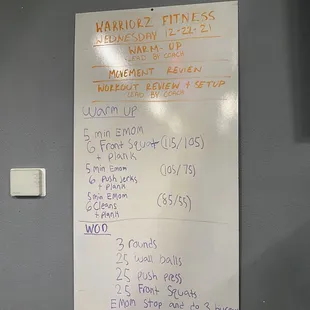 WARRIORZ FITNESS
WEDNESDAY 12-22-21
WARM-UP
LEAD BY COACH
MOVEMENT REVIEW
WORKOUT REVIEW + SETUP
LEAD BY COACH
Warm up
5 min EMOM
6 Front Squat (115/105)
+ Plank
5 min Emom (105/75)
6 Push Jerks
+ Plank
5 min EMOM (85/55)
6 Cleans
+ Plank
WOD
3 rounds
25 wall balls
25 push press
25 Front Squats
EMOM Stop and do 3